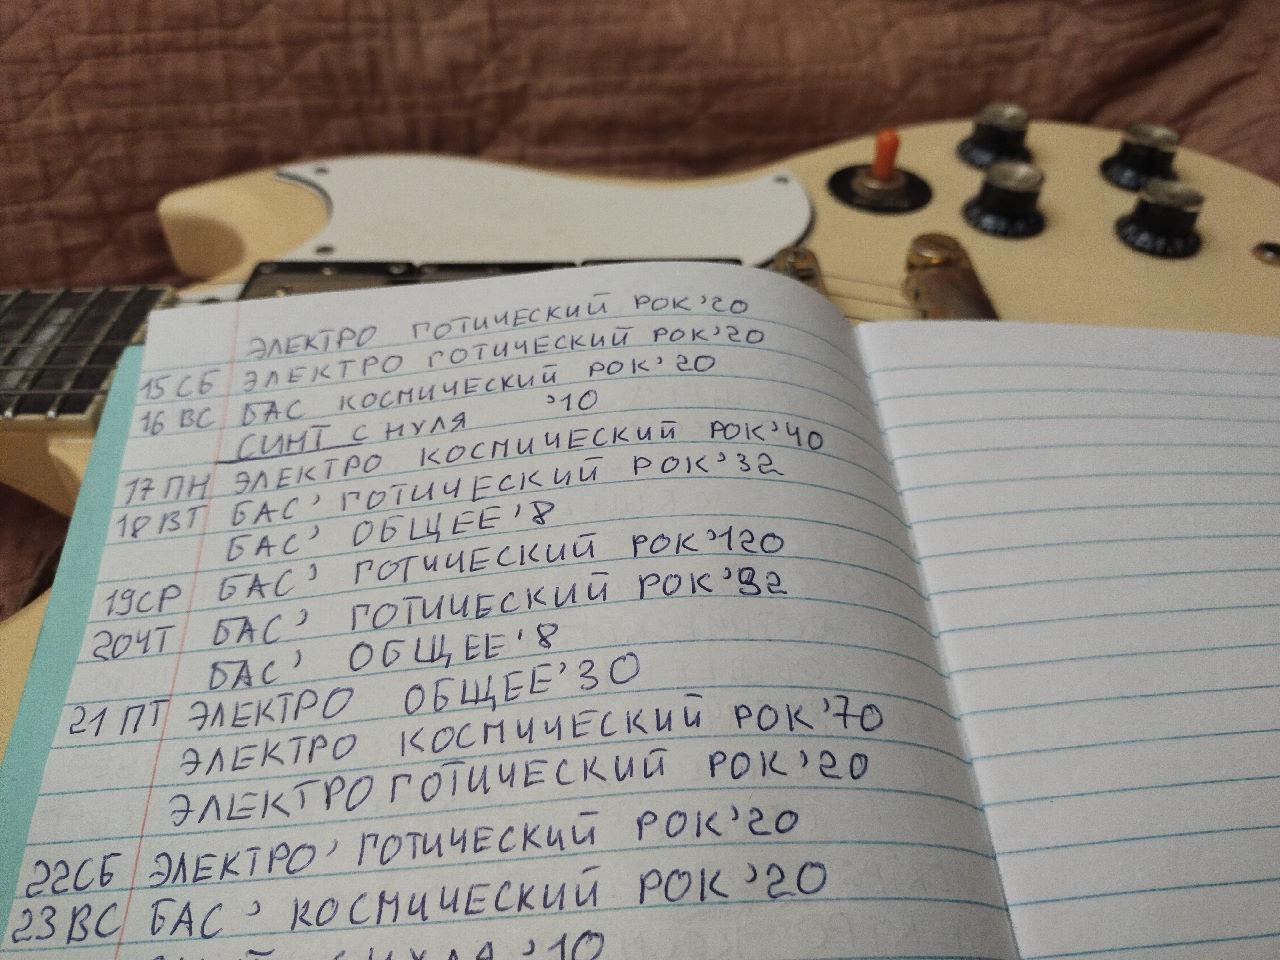 ЭЛЕКТРО ГОТИЧЕСКИЙ РОК'20
15 СБ ЭЛЕКТРО ГОТИЧЕСКИЙ РОК'20
16 ВС БАС КОСМИЧЕСКИЙ РОК'20
СИНТ С НУЛЯ '10
17 ПН ЭЛЕКТРО КОСМИЧЕСКИЙ РОК'40
18 ВТ БАС' ГОТИЧЕСКИЙ РОК'32
БАС' ОБЩЕЕ'8
19 СР БАС' ГОТИЧЕСКИЙ РОК'120
20 ЧТ БАС' ГОТИЧЕСКИЙ РОК'32
БАС' ОБЩЕЕ'8
21 ПТ ЭЛЕКТРО ОБЩЕЕ'30
ЭЛЕКТРО КОСМИЧЕСКИЙ РОК'70
ЭЛЕКТРО ГОТИЧЕСКИЙ РОК'20
22 СБ ЭЛЕКТРО' ГОТИЧЕСКИЙ РОК'20
23 ВС БАС' КОСМИЧЕСКИЙ РОК'20
С НУЛЯ '10